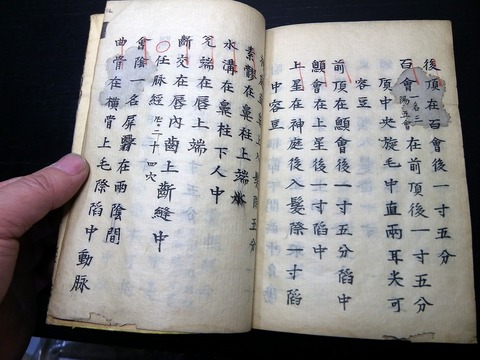 後頂在百會後一寸五分
百會一名三陽五會在前頂後一寸五分
頂中央旋毛中直兩耳尖可
容豆
前頂在顖會後一寸五分陷中
顖會在上星後一寸陷中
上星在神庭後入髮際一寸陷
中容豆
髮際五分
素髎在鼻柱上端
水溝在鼻柱下人中
兌端在唇上端
齗交在唇內齒上齗縫中
〇任脈經凡二十四穴
會陰一名屏翳在兩陰間
曲骨在橫骨上毛際陷中動脈